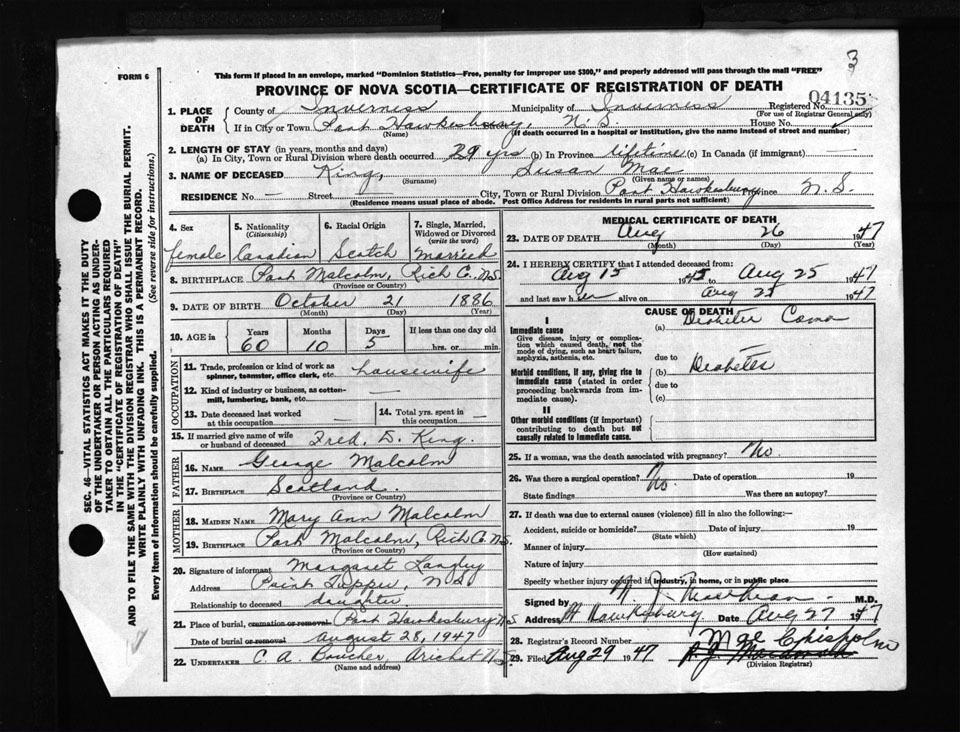 3
FORM 6
This form if placed in an envelope, marked "Dominion Statistics—Free, penalty for improper use $300," and properly addressed will pass through the mail "FREE"
PROVINCE OF NOVA SCOTIA—CERTIFICATE OF REGISTRATION OF DEATH
04135
1. PLACE OF DEATH
County of Inverness Municipality of Inverness Registered No.
(For use of Registrar General only)
If in City or Town Port Hawkesbury, N.S. Street House No.
(Name) (If death occurred in a hospital or institution, give the name instead of street and number)
2. LENGTH OF STAY (in years, months and days)
(a) In City, Town or Rural Division where death occurred 29 yrs (b) In Province lifetime (c) In Canada (if immigrant) —
3. NAME OF DECEASED King, Susan Mae
(Surname) (Given name or names)
RESIDENCE No. — Street City, Town or Rural Division Port Hawkesbury Province N.S.
(Residence means usual place of abode. Post Office Address for residents in rural parts not sufficient)
4. Sex
female
5. Nationality
(Citizenship)
Canadian
6. Racial Origin
Scotch
7. Single, Married, Widowed or Divorced
(write the word)
married
8. BIRTHPLACE Port Malcolm, Rich Co., N.S.
(Province or Country)
9. DATE OF BIRTH October 21 1886
(Month) (Day) (Year)
10. AGE in Years Months Days If less than one day old
60 10 5 hrs. or min.
OCCUPATION
11. Trade, profession or kind of work as spinner, teamster, office clerk, etc. housewife
12. Kind of industry or business, as cotton-mill, lumbering, bank, etc. —
13. Date deceased last worked at this occupation —
14. Total yrs. spent in this occupation —
15. If married give name of wife or husband of deceased Fred. D. King.
FATHER
16. NAME George Malcolm
17. BIRTHPLACE Scotland.
(Province or Country)
MOTHER
18. MAIDEN NAME Mary Ann Malcolm
19. BIRTHPLACE Port Malcolm, Rich Co. N.S.
(Province or Country)
20. Signature of informant Margaret Langley
Address Point Tupper, N.S.
Relationship to deceased daughter.
21. Place of burial, cremation or removal Port Hawkesbury N.S
Date of burial or removal August 28, 1947
22. UNDERTAKER C. A. Boucher, Arichat N.S.
(Name and address)
MEDICAL CERTIFICATE OF DEATH
23. DATE OF DEATH Aug 26 1947
(Month) (Day) (Year)
24. I HEREBY CERTIFY that I attended deceased from:
Aug 15 1945 to Aug 25 1947
and last saw her alive on Aug 25 1947
CAUSE OF DEATH
I
Immediate cause
Give disease, injury or complication which caused death, not the mode of dying, such as heart failure, asphyxia, asthenia, etc.
(a) Diabetic Coma
due to
Morbid conditions, if any, giving rise to immediate cause (stated in order proceeding backwards from immediate cause).
(b) Diabetes
due to
(c)
II
Other morbid conditions (if important) contributing to death but not causally related to immediate cause.
25. If a woman, was the death associated with pregnancy? No.
26. Was there a surgical operation? No. Date of operation 19
State findings Was there an autopsy?
27. If death was due to external causes (violence) fill in also the following:—
Accident, suicide or homicide? Date of injury 19
(State which)
Manner of injury
(How sustained)
Nature of injury
Specify whether injury occurred in industry, in home, or in public place
Signed by M.D.
Address Hawkesbury. Date Aug 27 1947
28. Registrar's Record Number
29. Filed Aug 29 1947 Mae Chisholm
(Division Registrar)
SEC. 46—VITAL STATISTICS ACT MAKES IT THE DUTY
OF THE UNDERTAKER OR PERSON ACTING AS UNDER-
TAKER TO OBTAIN ALL THE PARTICULARS REQUIRED
IN THE "CERTIFICATE OF REGISTRATION OF DEATH"
AND TO FILE THE SAME WITH THE DIVISION REGISTRAR WHO SHALL ISSUE THE BURIAL PERMIT.
WRITE PLAINLY WITH UNFADING INK. THIS IS A PERMANENT RECORD.
Every item of information should be carefully supplied. (See reverse side for instructions.)